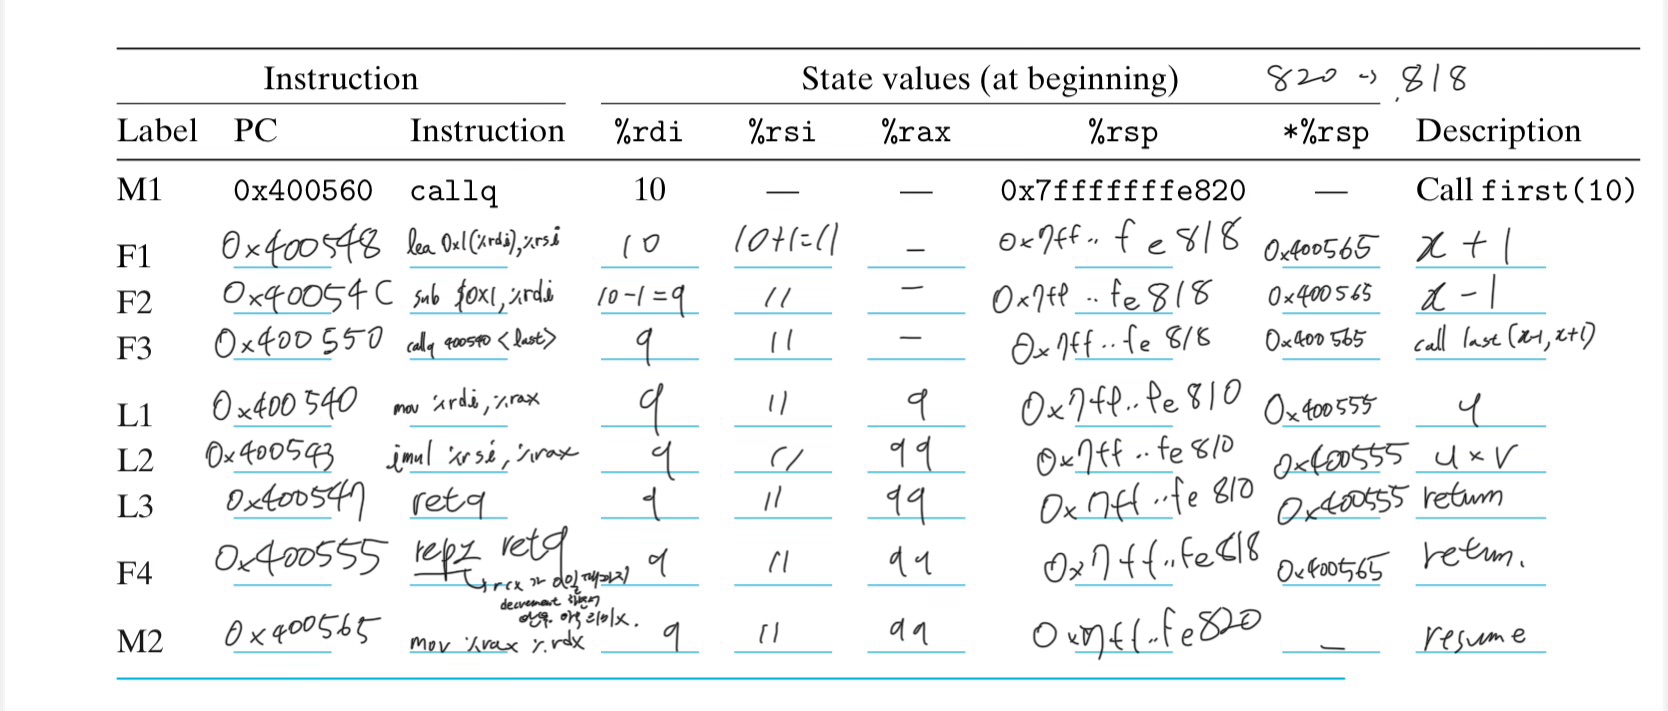 Instruction State values (at beginning) 820 -> 818
Label PC Instruction %rdi %rsi %rax %rsp *%rsp Description
M1 0x400560 callq 10 — — 0x7fffffffe820 — Call first(10)
F1 0x400548 lea 0x1(%rdi),%rsi 10 10+1=11 – 0x7ff..fe818 0x400565 x+1
F2 0x40054C sub $0x1,%rdi 10-1=9 11 – 0x7ff..fe818 0x400565 x-1
F3 0x400550 callq 400540 <last> 9 11 – 0x7ff..fe818 0x400565 call last(x-1,x+1)
L1 0x400540 mov %rdi,%rax 9 11 9 0x7ff..fe810 0x400555 u
L2 0x400543 imul %rsi,%rax 9 11 99 0x7ff..fe810 0x400555 u×v
L3 0x400547 retq 9 11 99 0x7ff..fe810 0x400555 return
F4 0x400555 repz retq 9 11 99 0x7ff..fe818 0x400565 return.
rcx가 0일때까지
decrement
M2 0x400565 mov %rax %rdx 9 11 99 0x7ff..fe820 – resume